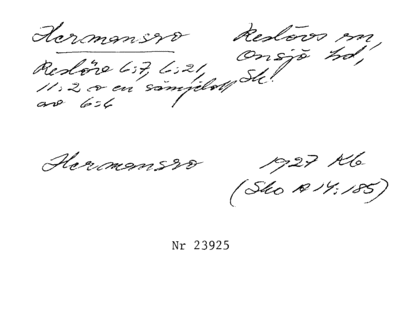 Hermansro
Reslövs sn,
Onsjö hd,
Sk!
Reslöv 6:7, 6:21,
11:2 o en sämjelott
av 6:6
Hermansro
1927 Kb
(Sko A 14:185)
Nr 23925